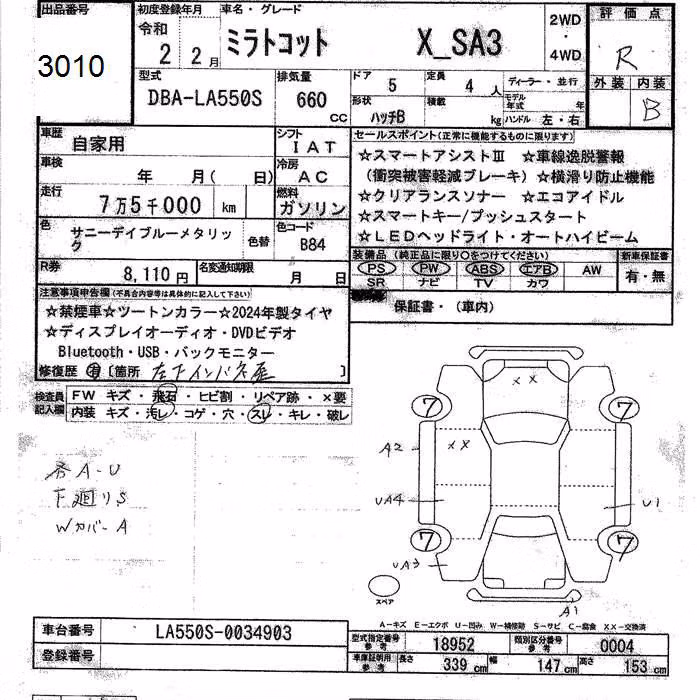 出品番号
3010
初度登録年月
令和
2 2月
車名・グレード
ミラトコット X_SA3
2WD
・
4WD
評価点
R
型式
DBA-LA550S
排気量
660
CC
ドア 5
定員 4 人
ディーラー・並行
形状 ハッチB
積載 kg
モデル年式 年
ハンドル 左・右
外装 内装
B
車歴 自家用
シフト IAT
車検 年 月( 日)
冷房 AC
走行 7万5千000 km
燃料 ガソリン
色 サニーデイブルーメタリック
色替
色コード B84
R券 8,110円
名変通知期限 月 日
セールスポイント(正常に機能するものに限ります)
☆スマートアシストⅢ ☆車線逸脱警報
(衝突被害軽減ブレーキ)☆横滑り防止機能
☆クリアランスソナー ☆エコアイドル
☆スマートキー/プッシュスタート
☆LEDヘッドライト・オートハイビーム
装備品(純正品に限り○をつけてください)
PS PW ABS エアB AW
SR ナビ TV カワ
新車保証書
有・無
保証書・(車内)
注意事項申告欄(不具合内容等は具体的に記入して下さい)
☆禁煙車☆ツートンカラー☆2024年製タイヤ
☆ディスプレイオーディオ・DVDビデオ
Bluetooth・USB・バックモニター
修復歴 有 [箇所 左下インパネ歪 ]
検査員記入欄
FW キズ・飛石・ヒビ割・リペア跡・×要
内装 キズ・汚レ・コゲ・穴・スレ・キレ・破レ
A-U
下廻りS
Wカバー A
××
7 7
A2
××
UA4
U1
7 7
UA3
A1
スペア
A-キズ E-エクボ U-凹み W-補修跡 S-サビ C-腐食 XX-交換済
車台番号 LA550S-0034903
登録番号
型式指定番号 参考 18952
類別区分番号 参考 0004
車庫証明用 参考 長さ 339 cm 幅 147 cm 高さ 153 cm